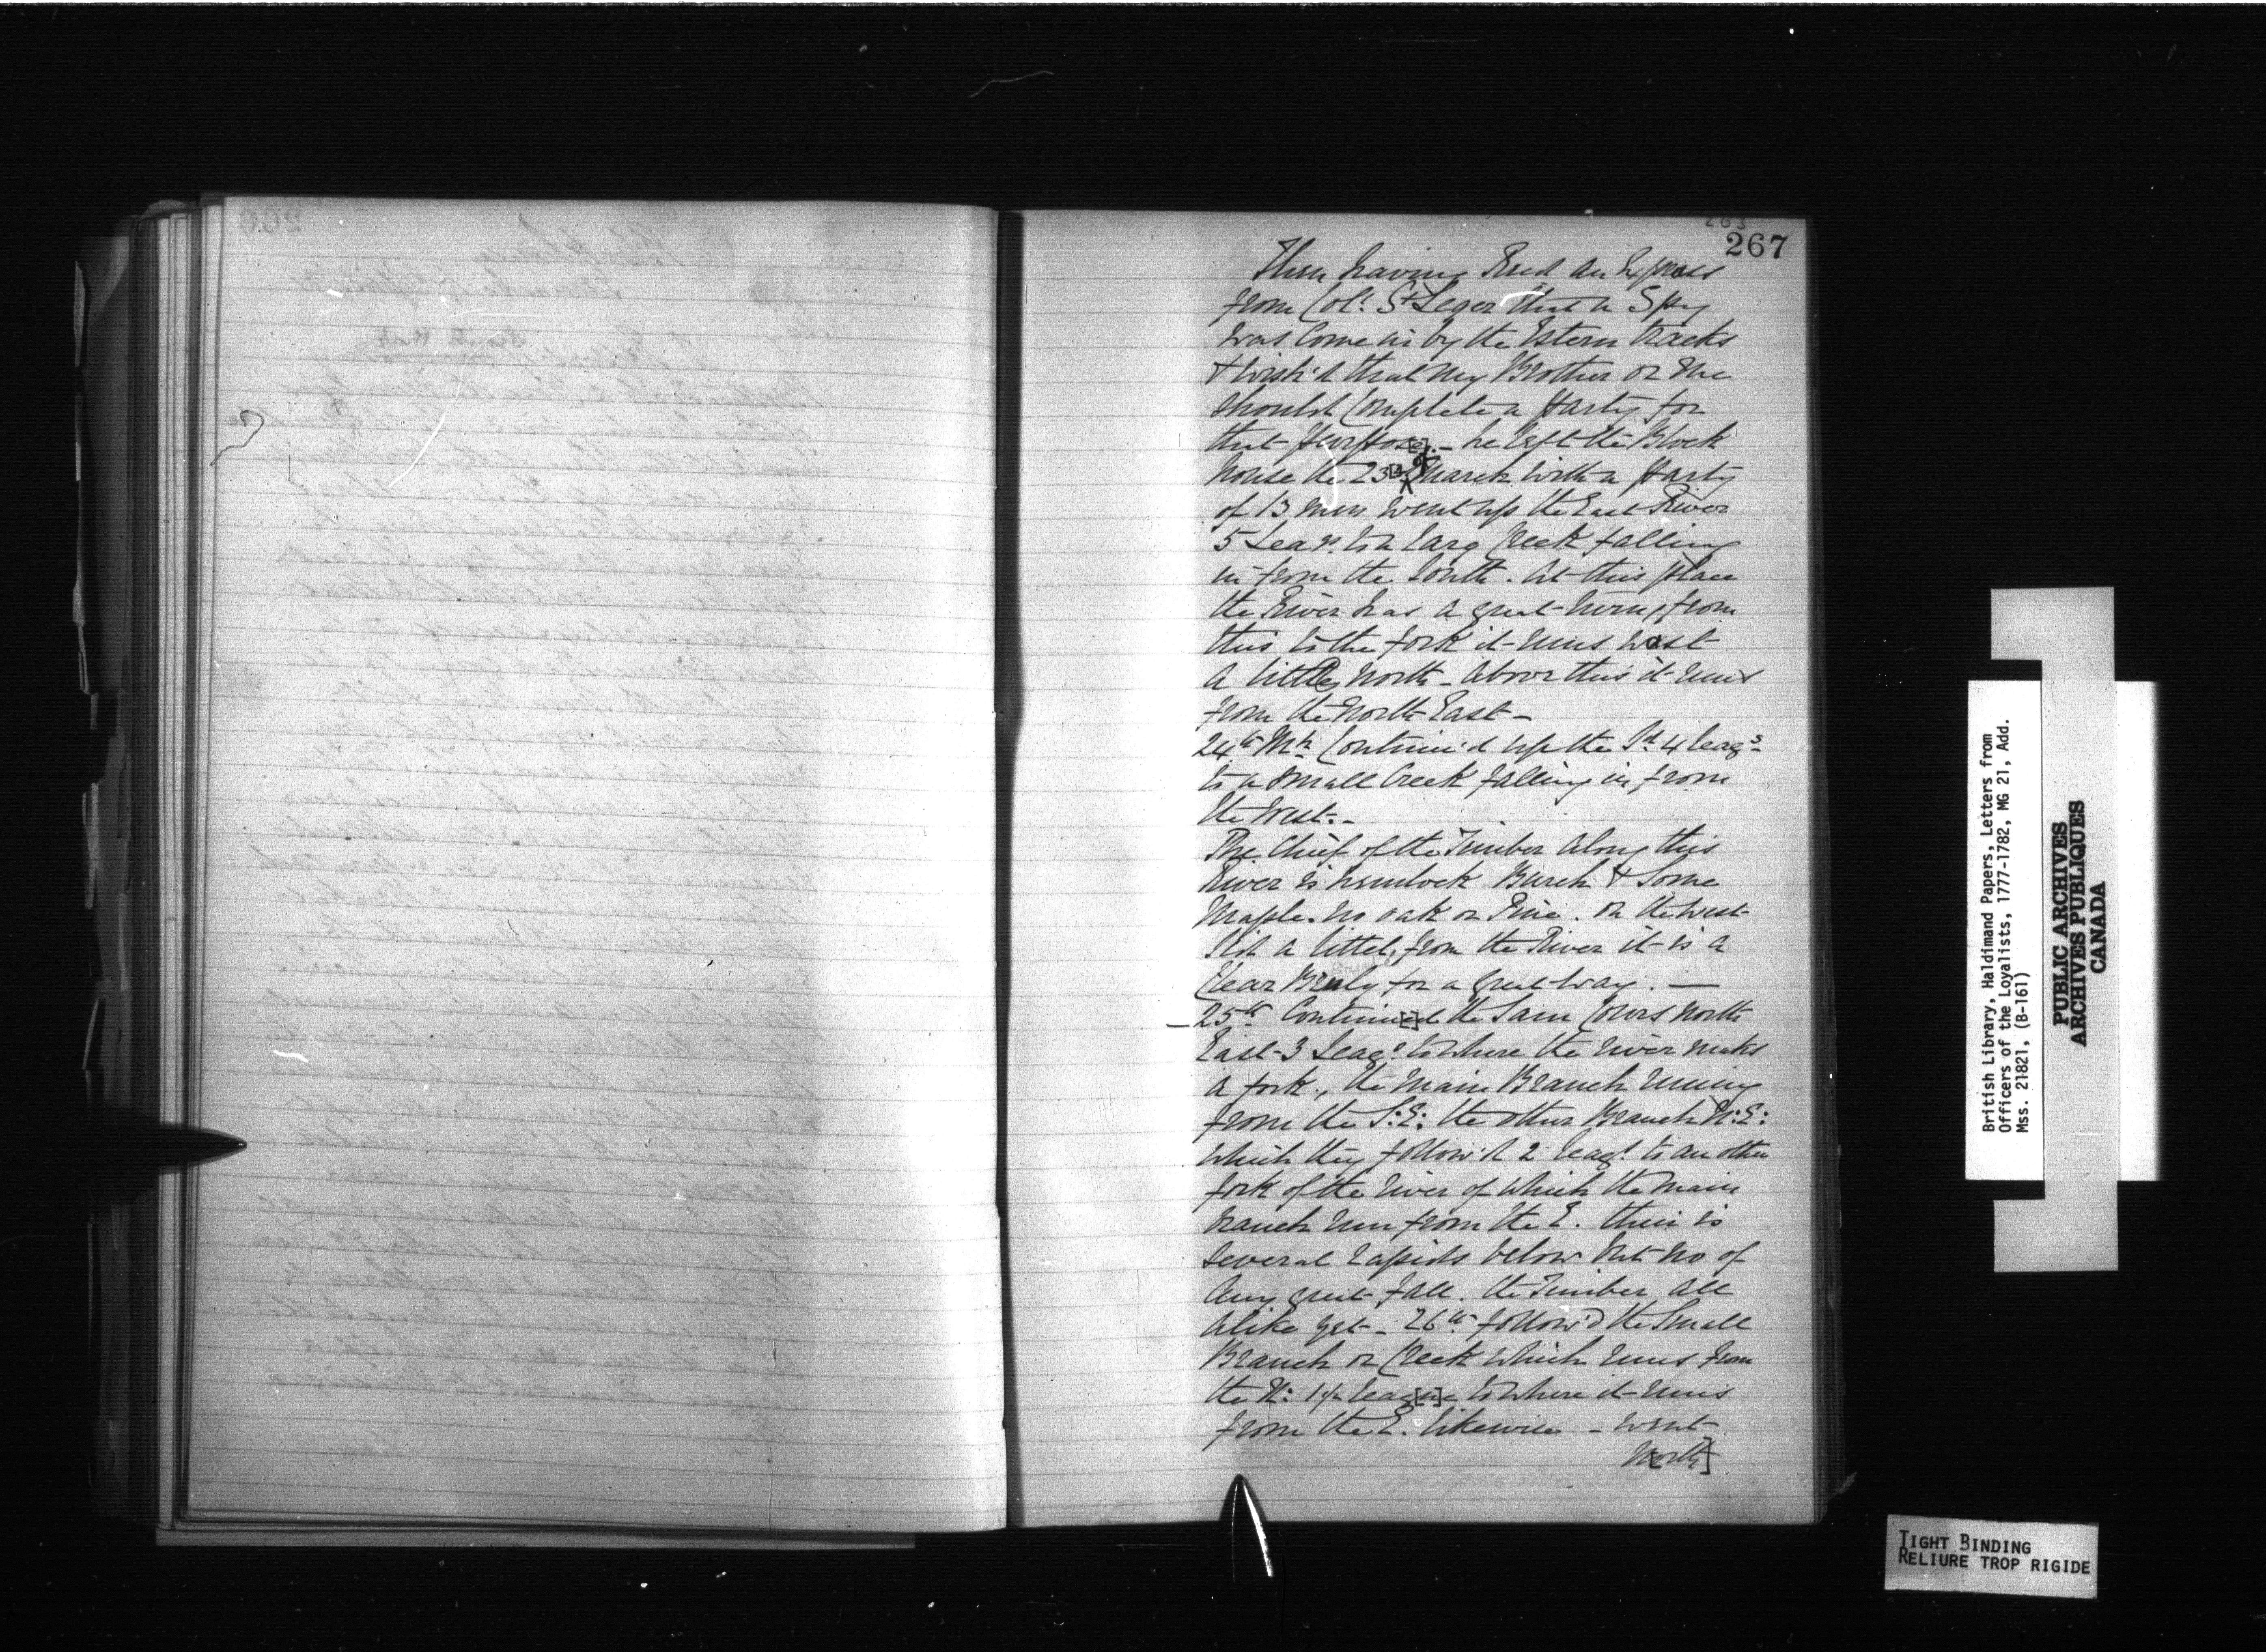 267
Then having Recd an Express
from Colˡ St Leger that a Spy
was Come in by the Estern tracks
& wish'd that my Brother or Me
should Complete a Party for
that purpose. – he left the Block
house the 23d of March with a Party
of 13 men went up the East River
5 Leags. to a Larg Creek falling
in from the South. At this place
the River has a great turn, from
this to the fork it runs West
a little North – Above this it runs
from the North East –
24th Mh Continu'd up the Sd 4 leags
to a small Creek falling in from
the West. –
The Chief of the Timber along this
River is hemlock Burch & Some
Maple. no oak or Pine. on the West
Sid a littel, from the River it is a
Clear for a great way. —
– 25th Continu[e]d the Sam Cours North
East 3 Leags to where the River maks
a fork., the main Branch runing
from the S:E: the other Branch N:E:
which they follow'd 2 leags to an other
fork of the river of which the main
branch run from the E. their is
several rapids below but no of
any great fall. the Timber all
alike yet – 26th follow'd the Small
Branch or Creek which runs from
the N: 1½ leag[u]e to where it runs
from the E. likewise – went
North]
British Library, Haldimand Papers, Letters from
Officers of the Loyalists, 1777-1782, MG 21, Add.
Mss. 21821, (B-161)
PUBLIC ARCHIVES
ARCHIVES PUBLIQUES
CANADA
TIGHT BINDING
RELIURE TROP RIGIDE